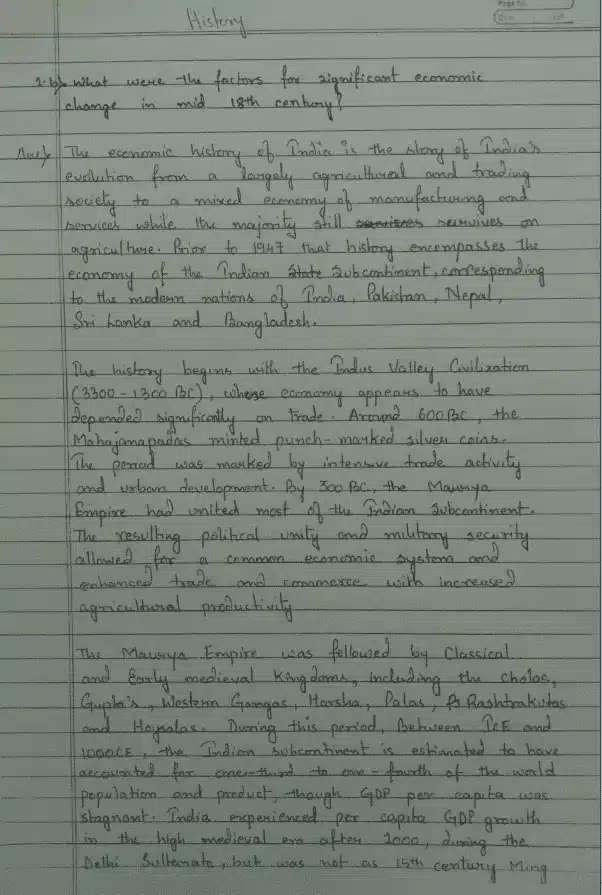 History
Page No.
Date
1.b) What were the factors for significant economic
change in mid 18th century?
Ans:)
The economic history of India is the story of India's
evolution from a largely agricultural and trading
society to a mixed economy of manufacturing and
services while the majority still survives on
agriculture. Prior to 1947 that history encompasses the
economy of the Indian State Subcontinent, corresponding
to the modern nations of India, Pakistan, Nepal,
Sri Lanka and Bangladesh.
The history begins with the Indus Valley Civilization
(3300-1300 BC), whose economy appears to have
depended significantly on trade. Around 600 BC, the
Mahajanapadas minted punch-marked silver coins.
The period was marked by intensive trade activity
and urban development. By 300 BC, the Maurya
Empire had united most of the Indian Subcontinent.
The resulting political unity and military security
allowed for a common economic system and
enhanced trade and commerce with increased
agricultural productivity
The Maurya Empire was followed by Classical
and Early medieval Kingdoms, including the Cholas,
Gupta's, Western Gangas, Harsha, Palas, Rashtrakutas
and Hoysalas. During this period, Between 1CE and
1000CE, the Indian subcontinent is estimated to have
accounted for one-third to one-fourth of the world
population and product, though GDP per capita was
stagnant. India experienced per capita GDP growth
in the high medieval era after 1000, during the
Delhi Sultanate, but was not as 15th century Ming